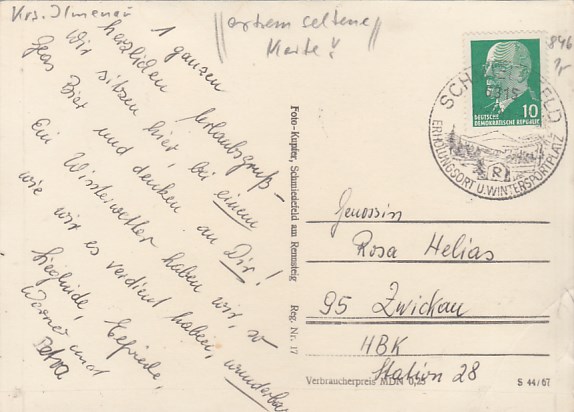 Krs. Ilmenau
"extrem seltene
Karte"!
846
1 ganzen
herzlichen Urlaubsgruß –
Wir sitzen hier, bei einem
Glas Bier und denken an Dir!
Ein Winterwetter haben wir, so
wie wir es verdient haben, wunderbar
Sieglinde, Elfriede,
Werner und
Petra
Foto-Kupfer, Schmiedefeld am Rennsteig Reg. Nr. 17
10
DEUTSCHE
DEMOKRATISCHE REPUBLIK
ERHOLUNGSORT U. WINTERSPORTPLATZ
R
Genossin
Rosa Helias
95 Zwickau
HBK
Station 28
Verbraucherpreis MDN 0,25
S 44/67